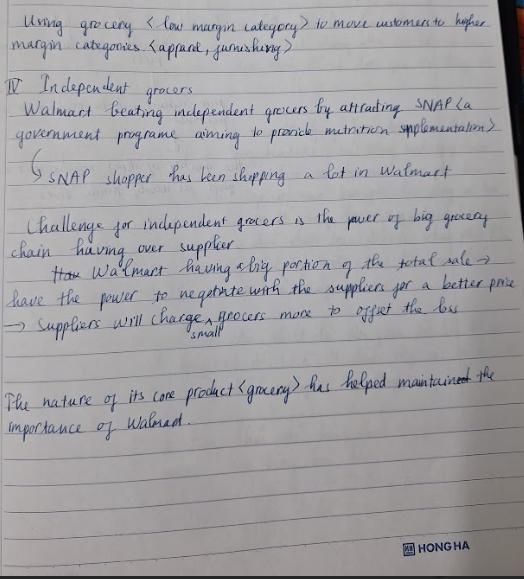 Using grocery <low margin category> to move customers to higher
margin categories <apparel, furnishing>
IV Independent grocers
Walmart beating independent grocers by attracting SNAP <a
government programe aiming to provide nutrition supplementation>
↳ SNAP shopper has been shipping a lot in Walmart
Challenge for independent grocers is the power of big grocery
chain having over supplier
Walmart having a big portion of the total sale →
have the power to negotiate with the suppliers for a better price
→ Suppliers will charge ^ grocers more to offset the loss
small
The nature of its core product <grocery> has helped maintain the
importance of Walmart.
HONG HA